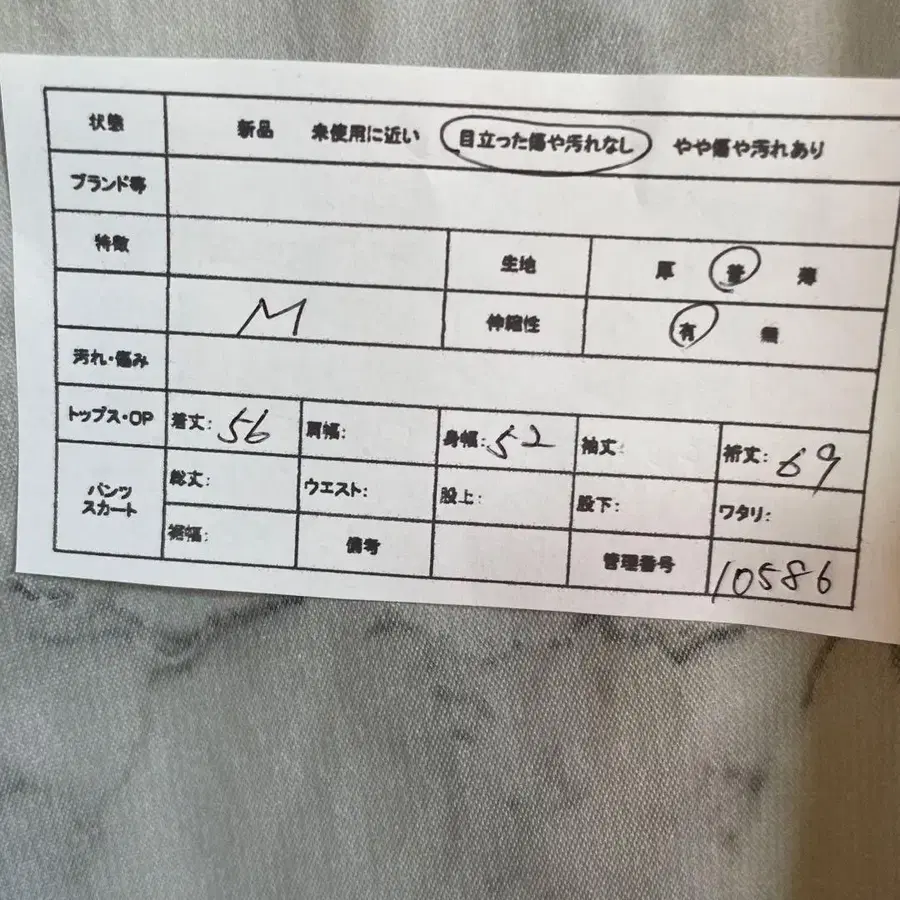 状態 新品 未使用に近い 目立った傷や汚れなし やや傷や汚れあり
ブランド等
特徴 生地 厚 普 薄
M 伸縮性 有 無
汚れ・傷み
トップス・OP 着丈: 56 肩幅: 身幅: 52 袖丈: 裄丈: 69
パンツ
スカート
総丈: ウエスト: 股上: 股下: ワタリ:
裾幅: 備考 管理番号 10586